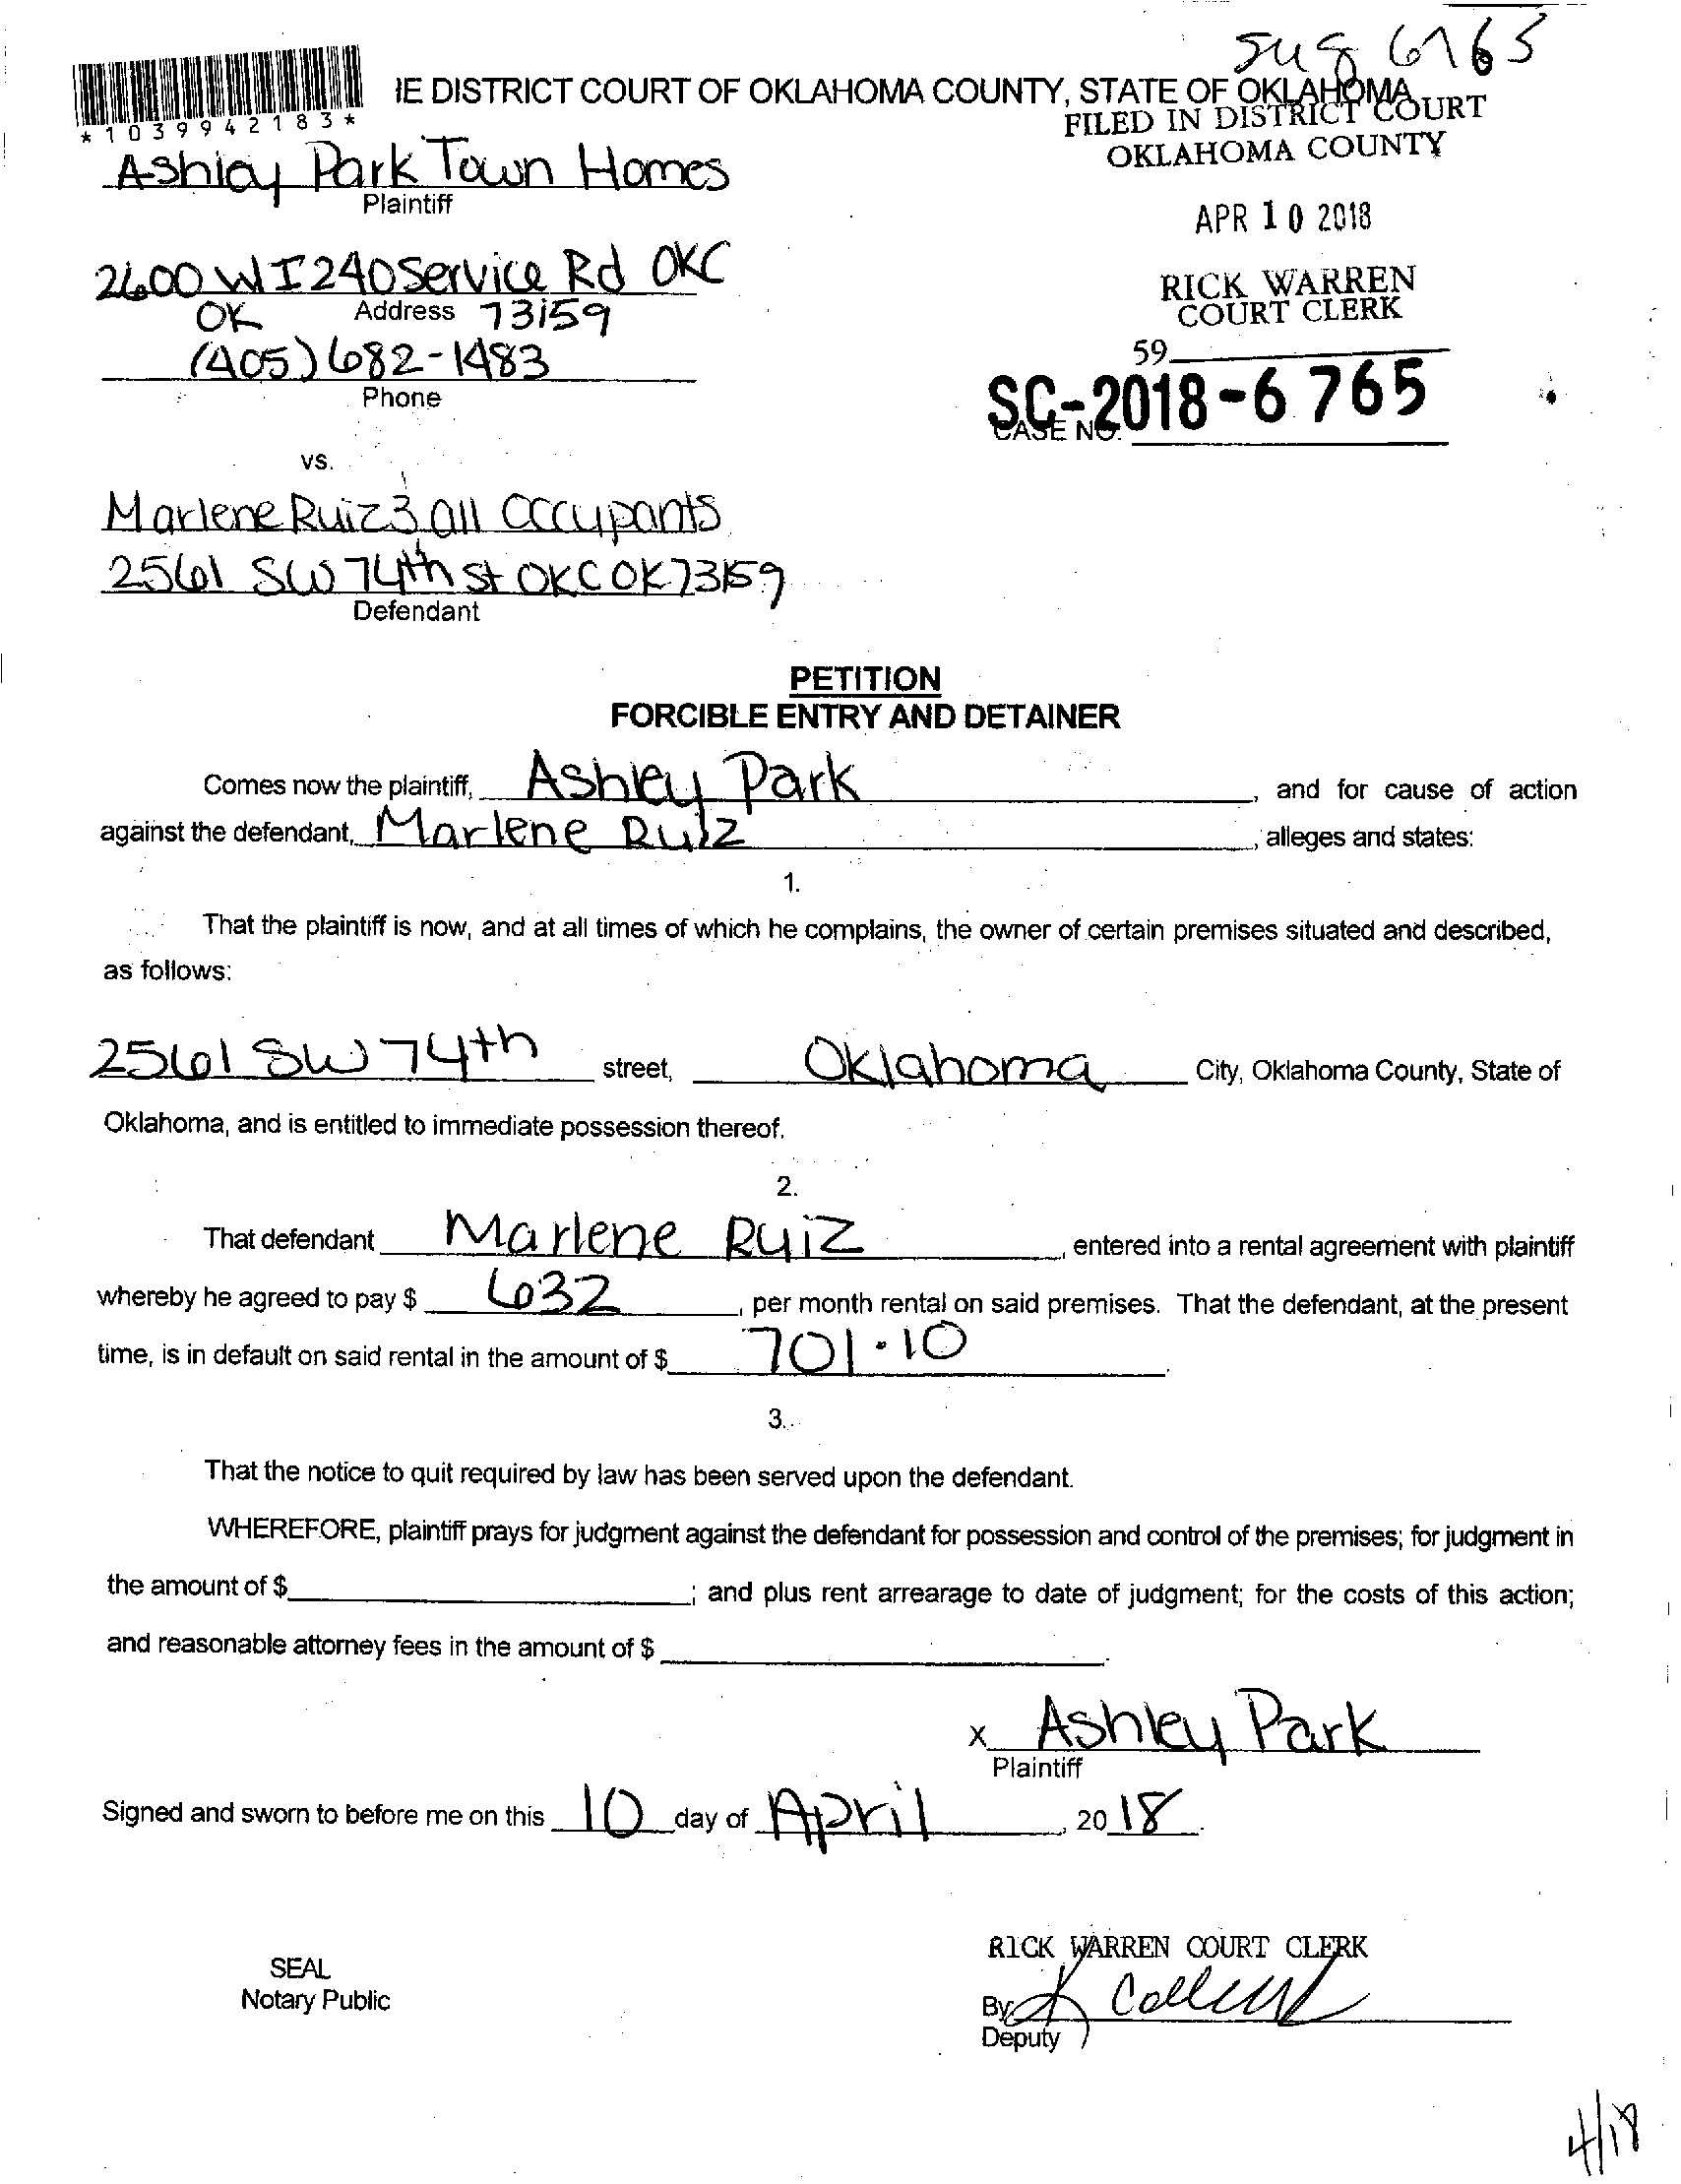 IE DISTRICT COURT OF OKLAHOMA COUNTY, STATE OF OKLAHOMA
*1039942183*
FILED IN DISTRICT COURT
OKLAHOMA COUNTY
Ashley Park Town Homes
Plaintiff
APR 10 2018
2600 W I 240 Service Rd OKC
OK 73159
Address
RICK WARREN
COURT CLERK
(405) 682-1483
Phone
59
SC-2018-6765
CASE NO.
vs.
Marlene Ruiz & all occupants
2561 SW 74th St OKC OK 73159
Defendant
PETITION
FORCIBLE ENTRY AND DETAINER
Comes now the plaintiff, Ashley Park, and for cause of action
against the defendant, Marlene Ruiz, alleges and states:
1.
That the plaintiff is now, and at all times of which he complains, the owner of certain premises situated and described,
as follows:
2561 SW 74th street, Oklahoma City, Oklahoma County, State of
Oklahoma, and is entitled to immediate possession thereof.
2.
That defendant Marlene Ruiz, entered into a rental agreement with plaintiff
whereby he agreed to pay $ 632, per month rental on said premises. That the defendant, at the present
time, is in default on said rental in the amount of $ 701.10.
3.
That the notice to quit required by law has been served upon the defendant.
WHEREFORE, plaintiff prays for judgment against the defendant for possession and control of the premises; for judgment in
the amount of $ ; and plus rent arrearage to date of judgment; for the costs of this action;
and reasonable attorney fees in the amount of $ .
x Ashley Park
Plaintiff
Signed and sworn to before me on this 10 day of April, 20 18.
RICK WARREN COURT CLERK
SEAL
Notary Public
By
Deputy
4/18